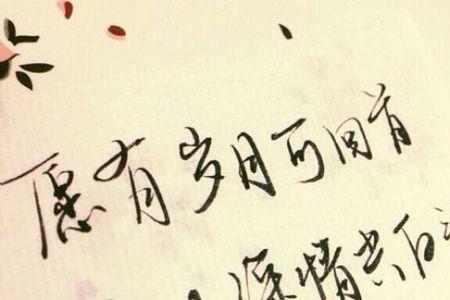 愿有岁月可回首
深情共白